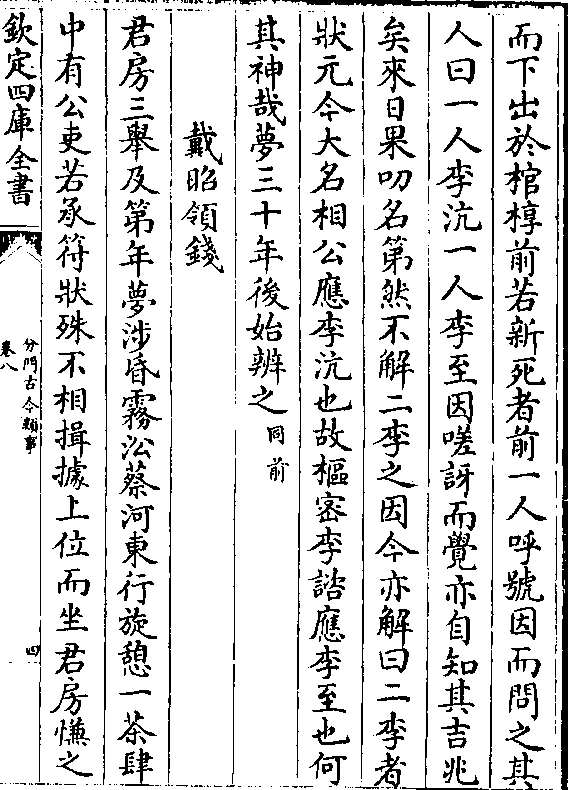 而下出於棺椁前若新死者前一人呼號因而問之其
人曰一人李沆一人李至因嗟訝而覺亦自知其吉兆
矣來日果叨名第然不解二李之因今亦解曰二李者
狀元今大名相公應李沆也故樞宻李諮應李至也何
其神哉夢三十年後始辨之同前
戴昭領錢
君房三舉及第年夢涉昏霧㳂蔡河東行旋憩一茶肆
中有公吏若承符狀殊不相揖據上位而坐君房慊之
欽定四庫全書
分門古今類事
卷八
四